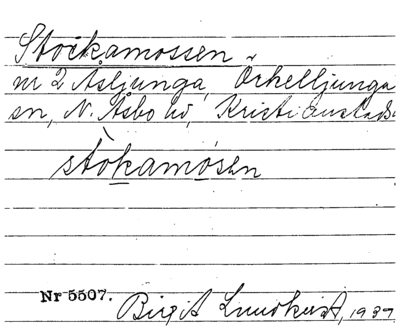 Stockamossen
nr 2 Åsljunga, Örkelljunga
sn, N. Åsbo hd, Kristianstads
stòkamósen
Nr 5507.
Birgit Lundkvist, 1937